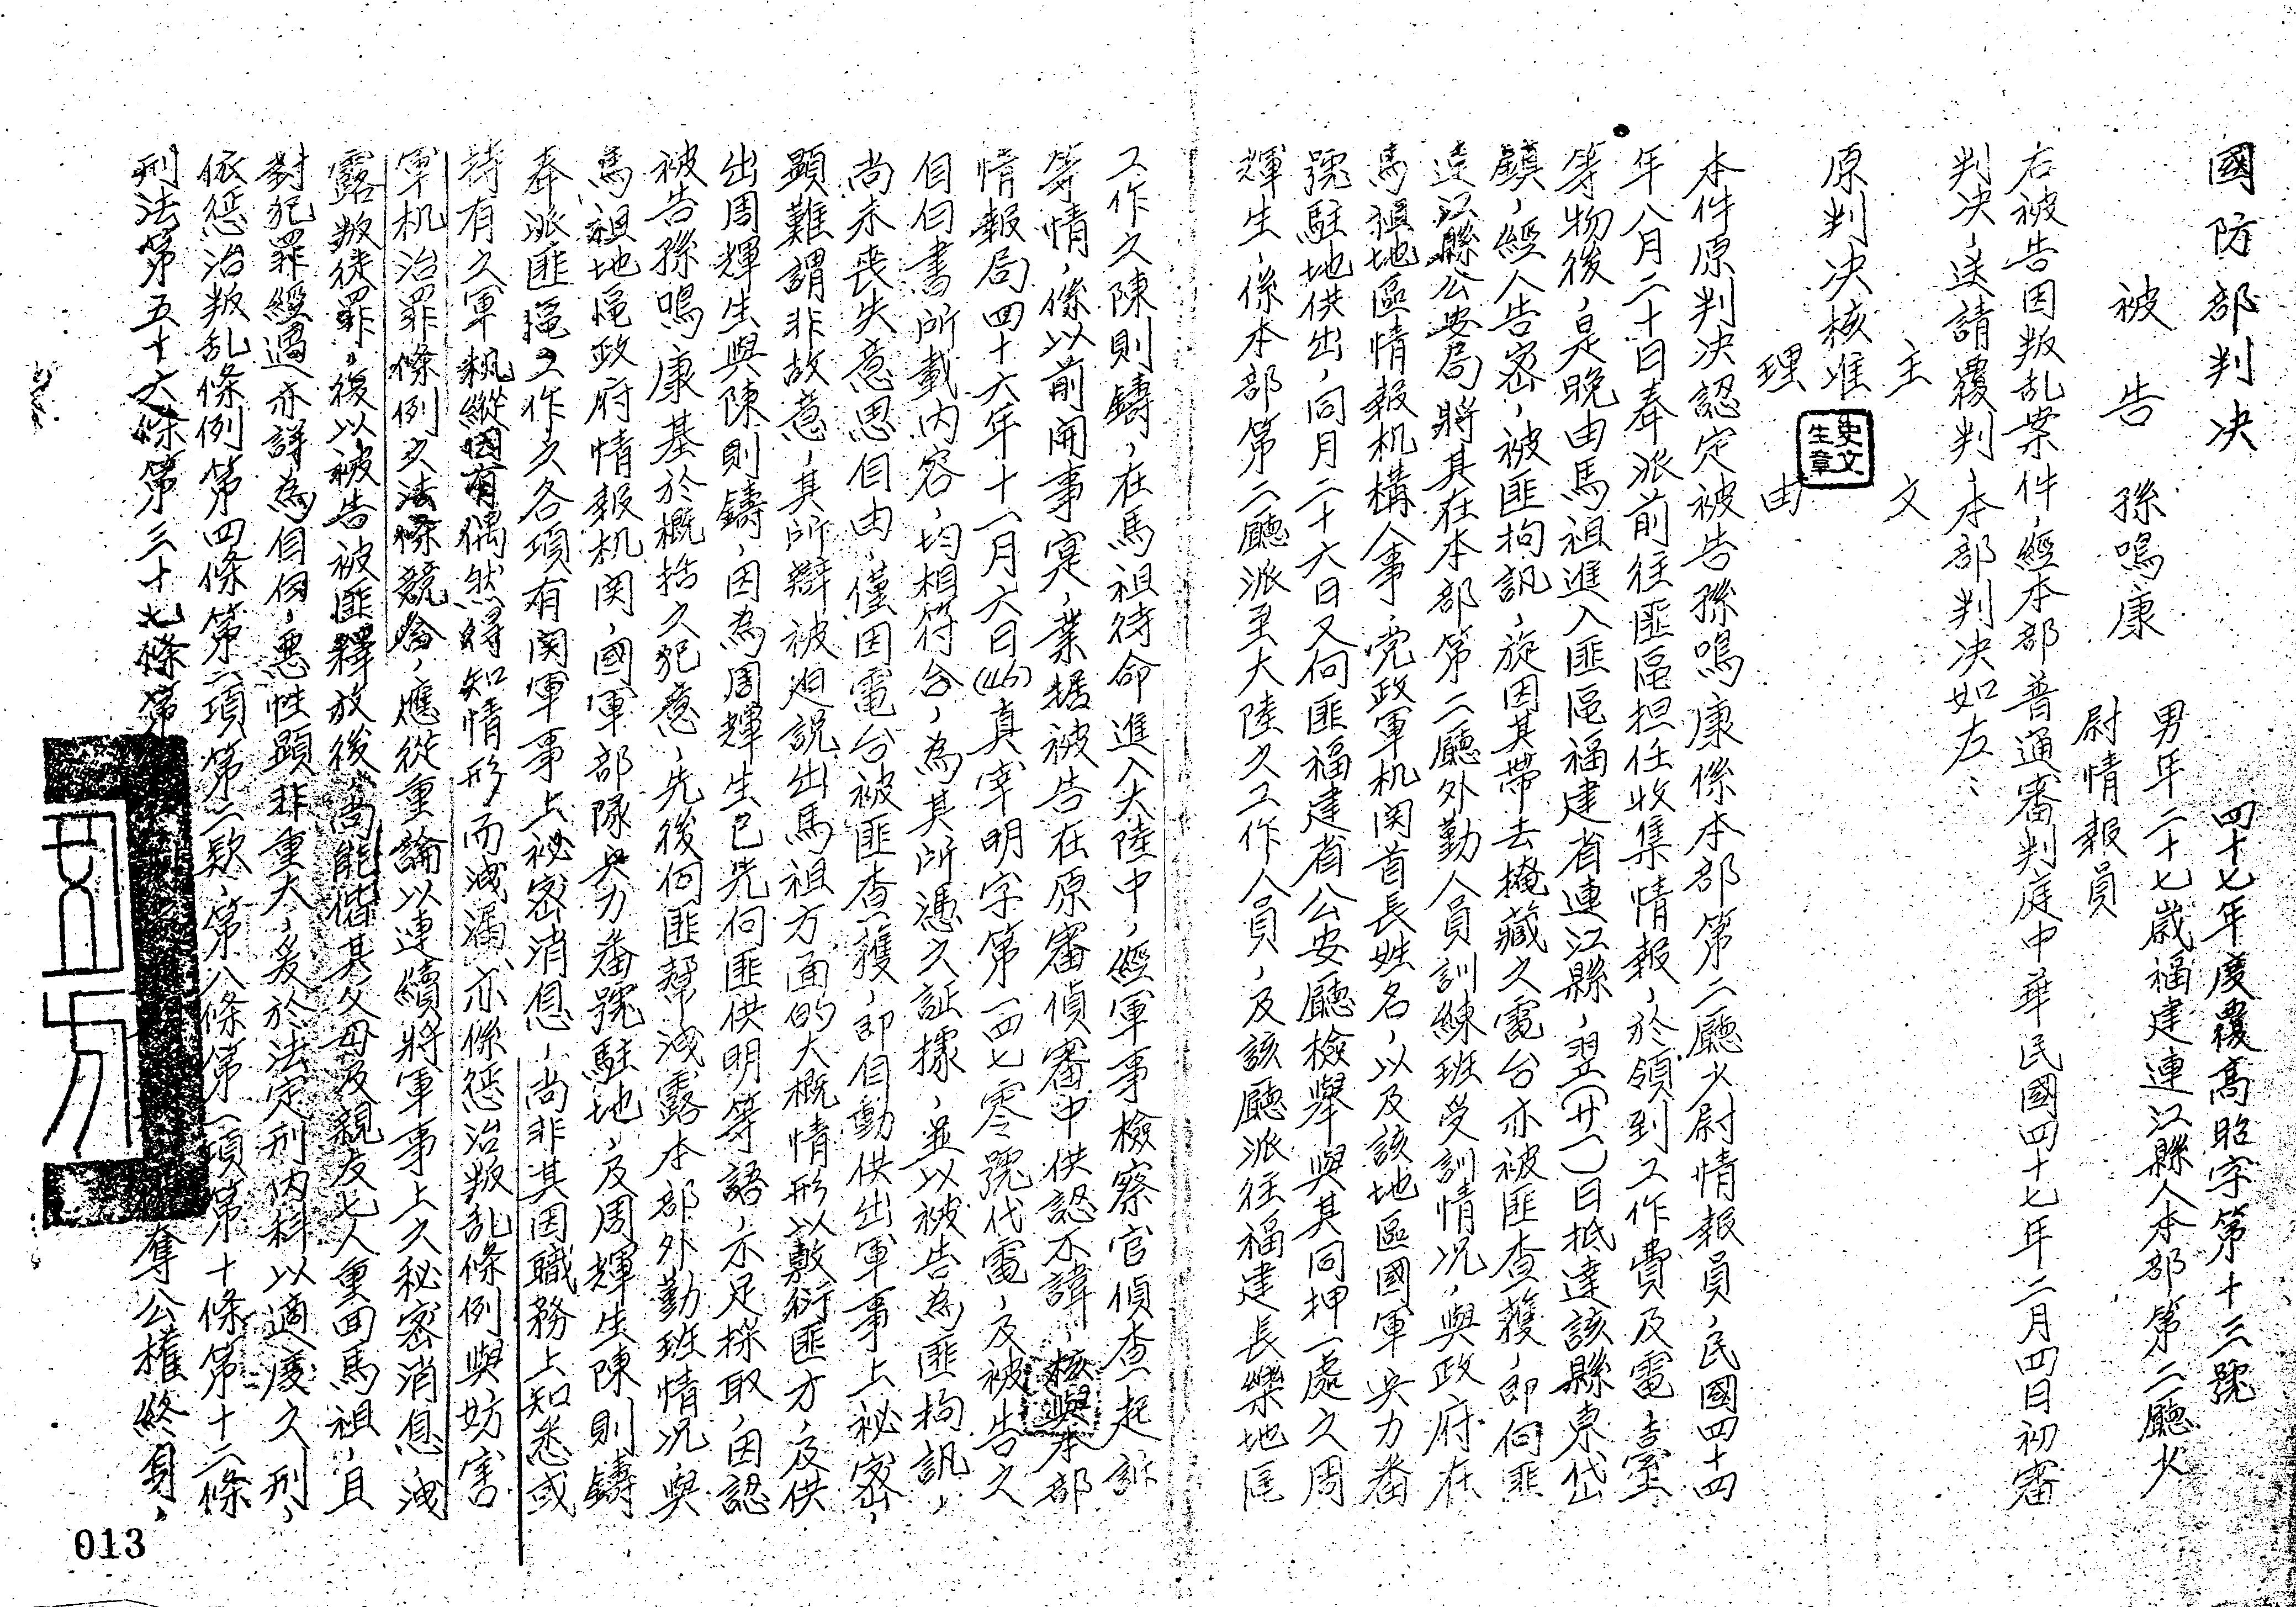 國防部判決
四十七年度覆高昭字第十三號
被告 孫鳴康 男年二十七歲福建連江縣人本部第二廳少
尉情報員
右被告因叛乱案件，經本部普通審判庭中華民國四十七年二月四日初審
判决，送請覆判，本部判决如左：
主文
原判决核准
史文
生章
理由
本件原判决認定被告孫鳴康係本部第二廳少尉情報員，民國四十四
年八月二十日奉派前往匪區担任收集情報，於領到工作費及電臺
等物後，是晚由馬祖進入匪區福建省連江縣，翌(廿一)日抵達該縣東岱
鎮，經人告密，被匪拘訊，旋因其帶去掩藏之電台亦被匪查獲，即向匪
連江縣公安局將其在本部第二廳外勤人員訓練班受訓情况，與政府在
馬祖地區情報机構人事，党政軍机関首長姓名，以及該地區國軍兵力番
號駐地供出，同月二十六日又向匪福建省公安廳檢舉與其同押一處之周
輝生，係本部第二廳派至大陸之工作人員，及該廳派往福建長樂地區
工作之陳則鑄，在馬祖待命進入大陸中，經軍事檢察官偵查起訴
等情，係以前開事寔，業據被告在原審偵審中供認不諱，核與本部
情報局四十六年十一月六日(46)真宰明字第一四七零號代電，及被告之
自白書所載內容，均相符合，為其所憑之証據，並以被告為匪拘訊，
尚未丧失意思自由，僅因電台被匪查獲，即自動供出軍事上秘密，
顯難謂非故意，其所辯被迫説出馬祖方面的大概情形以敷衍匪方，及供
出周輝生與陳則鑄，因為周輝生已先向匪供明等語，亦足採取，因認
被告孫鳴康基於概括之犯意，先後向匪幫洩露本部外勤班情况與
馬祖地區政府情報机関，國軍部隊兵力番號駐地，及周輝生陳則鑄
奉派匪區工作之各項有関軍事上祕密消息，尚非其因職務上知悉或
持有之軍机，縱因有偶然得知情形而洩漏，亦係惩治叛乱條例與妨害
軍机治罪條例之法條競合，應從重論以連續將軍事上之秘密消息洩
露叛徒罪，復以被告被匪釋放後，尚能偕其父母及親友七人重回馬祖，且
對犯罪經過亦詳為自白，悪性顯非重大，爰於法定刑內科以適度之刑，
依惩治叛乱條例第四條第二項第二款，第八條第一項第十條第十二條
刑法第五十六條第三十七條第 奪公權終身，
013